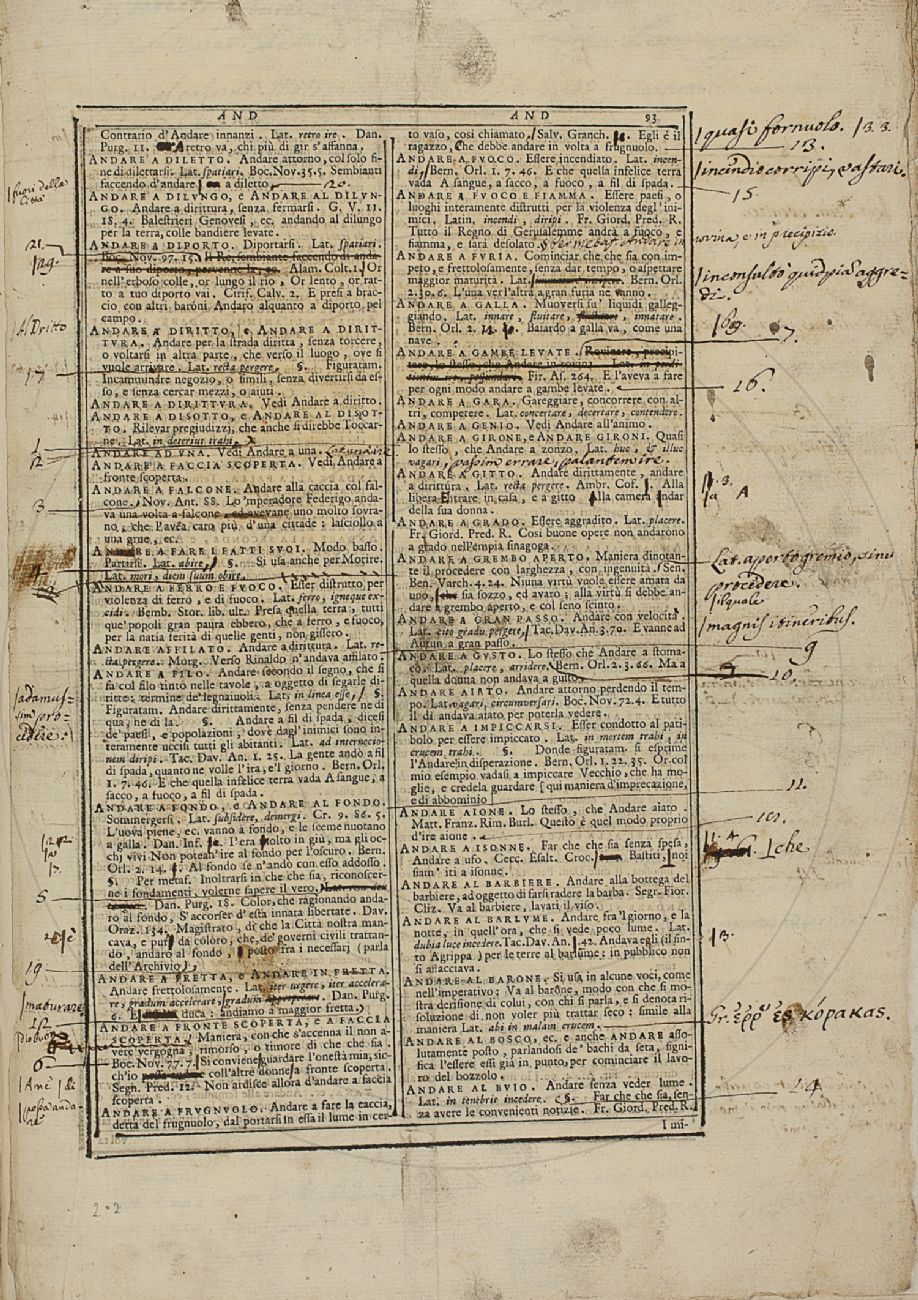 AND
AND 93
Contrario d'Andare innanzi. Lat. retro ire. Dan.
Purg. 11. retro va, chi più di gir s'affanna.
ANDARE A DILETTO. Andare attorno, col solo fi-
ne di dilettarsi. Lat. spatiari. Boc. Nov. 35. 5. Sembianti
faccendo d'andare a diletto
ANDARE A DILVNGO, e ANDARE AL DILVN-
GO. Andare a dirittura, senza fermarsi. G. V. 11.
18. 4. Balestrieri Genovesi, ec. andando al dilungo
per la terra, colle bandiere levate.
ANDARE A DIPORTO. Diportarsi. Lat. spatiari.
Boc. Nov. 97. 15. Il Re, sembiante faccendo di anda-
re a suo diporto, pervenne là, ec. Alam. Colt. 1. Or
nell'erboso colle, or lungo il rio, Or lento, or rat-
to a tuo diporto vai. Cirif. Calv. 2. E presi a brac-
cio con altri baroni Andaro alquanto a diporto pel
campo.
ANDARE A DIRITTO, e ANDARE A DIRIT-
TVRA. Andare per la strada diritta, senza torcere,
o voltarsi in altra parte, che verso il luogo, ove si
vuole arrivare. Lat. recta pergere. §. Figuratam.
Incamminare negozio, o simili, senza divertirsi da es-
so, e senza cercar mezzi, o aiuti.
ANDARE A DIRITTVRA. Vedi Andare a diritto.
ANDARE A DISOTTO, e ANDARE AL DISOT-
TO. Rilevar pregiudizzj, che anche si direbbe Toccar-
ne. Lat. in deterius trahi.
ANDARE AD VNA. Vedi Andare a una.
ANDARE A FACCIA SCOPERTA. Vedi Andare a
fronte scoperta.
ANDARE A FALCONE. Andare alla caccia col fal-
cone. Nov. Ant. 88. Lo 'mperadore Federigo anda-
va una volta a falcone, ed avevane uno molto sovra-
no, che l'avea caro più d'una cittade: lasciollo a
una grue, ec.
ANDARE A FARE I FATTI SVOI. Modo basso.
Partirsi. Lat. abire. §. Si usa anche per Morire.
Lat. mori, diem suum obire.
ANDARE A FERRO E FVOCO. Esser distrutto, per
violenza di ferro, e di fuoco. Lat. ferro, igneque ex-
cidi. Bemb. Stor. lib. ult. Presa quella terra, tutti
que' popoli gran paura ebbero, che a ferro, e fuoco,
per la natia ferità di quelle genti, non gissero.
ANDARE AFFILATO. Andare a dirittura. Lat. re-
cta pergere. Morg. Verso Rinaldo n'andava affilato.
ANDARE A FILO. Andare secondo il segno, che si
fa col filo tinto nelle tavole, a oggetto di segarle di-
ritte: termine de' legnaiuoli. Lat. in linea esse. §.
Figuratam. Andare dirittamente, senza pendere ne di
qua, ne di la. §. Andare a fil di spada, dicesi
de' paesi, e popolazioni, dove dagl'inimici sono in-
teramente uccisi tutti gli abitanti. Lat. ad internecio-
nem diripi. Tac. Dav. An. 1. 25. La gente andò a fil
di spada, quanto ne volle l'ira, e'l giorno. Bern. Orl.
1. 7. 46. E che quella infelice terra vada A sangue, a
sacco, a fuoco, a fil di spada.
ANDARE A FONDO, e ANDARE AL FONDO.
Sommergersi. Lat. subsidere, demergi. Cr. 9. 86. 5.
L'uova piene, ec. vanno a fondo, e le sceme nuotano
a galla. Dan. Inf. I'era volto in giù, ma gli oc-
chj vivi Non potean'ire al fondo per l'oscuro. Bern.
Orl. 2. 14. Al fondo se n'andò con esso addosso.
§. Per metaf. Inoltrarsi in che che sia, riconoscer-
ne i fondamenti, volerne sapere il vero.
Dan. Purg. 18. Color, che ragionando anda-
ro al fondo, S'accorser d'esta innata libertate. Dav.
Oraz. 134. Magistrato, di che la Città nostra man-
cava, e pur da coloro, che de' governi civili trattan-
do, andaro al fondo, posto fra i necessarj (parla
dell'Archivio)
ANDARE A FRETTA, e ANDARE IN FRETTA.
Andare frettolosamente. Lat. iter urgere, iter accelera-
re, gradum accelerare, gradum properare. Dan. Purg.
6. E duca: andiamo a maggior fretta.
ANDARE A FRONTE SCOPERTA, e A FACCIA
SCOPERTA. Maniera, con che s'accenna il non a-
vere vergogna, rimorso, o timore di che che sia.
Boc. Nov. 77. 7. Si conviene guardare l'onestà mia, sic-
ch'io coll'altre donne a fronte scoperta.
Segn. Pred. 12. Non ardisce allora d'andare a faccia
scoperta.
ANDARE A FRVGNVOLO. Andare a fare la caccia,
detta del frugnuolo, dal portarsi in essa il lume in cer-
to vaso, così chiamato. Salv. Granch. Egli è il
ragazzo, Che debbe andare in volta a frugnuolo.
ANDARE A FVOCO. Essere incendiato. Lat. incen-
di. Bern. Orl. 1. 7. 46. E che quella infelice terra
vada A sangue, a sacco, a fuoco, a fil di spada.
ANDARE A FVOCO E FIAMMA. Essere paesi, o
luoghi interamente distrutti per la violenza degl'ini-
mici, Latin. incendi, diripi. Fr. Giord. Pred. R.
Tutto il Regno di Gerusalemme andrà a fuoco, e
fiamma, e sarà desolato.
ANDARE A FVRIA. Cominciar che che sia con im-
peto, e frettolosamente, senza dar tempo, o aspettare
maggior maturità. Lat. Bern. Orl.
2. 30. 6. L'una ver l'altra a gran furia ne vanno.
ANDARE A GALLA. Muoversi su' liquidi galleg-
giando. Lat. innare, fluitare, innatare.
Bern. Orl. 2. Baiardo a galla va, come una
nave.
ANDARE A GAMBE LEVATE.
Fir. As. 264. E l'aveva a fare
per ogni modo andare a gambe levate.
ANDARE A GARA. Gareggiare, concorrere con al-
tri, competere. Lat. concertare, decertare, contendere.
ANDARE A GENIO. Vedi Andare all'animo.
ANDARE A GIRONE, e ANDARE GIRONI. Quasi
lo stesso, che Andare a zonzo. Lat. huc, & illuc
vagari, passim errare, palantem ire.
ANDARE A GITTO. Andare dirittamente, andare
a dirittura, Lat. recta pergere. Ambr. Cof. Alla
libera Entrare in casa, e a gitto Alla camera Andar
della sua donna.
ANDARE A GRADO. Essere aggradito. Lat. placere.
Fr. Giord. Pred. R. Così buone opere non andarono
a grado nell'empia sinagoga.
ANDARE A GREMBO APERTO. Maniera dinotan-
te il procedere con larghezza, con ingenuità. Sen.
Ben. Varch. 4. 24. Niuna virtù vuole essere amata da
uno, che sia sozzo, ed avaro; alla virtù si debbe an-
dare a grembo aperto, e col seno scinto.
ANDARE A GRAN PASSO. Andare con velocità.
Lat. cito gradu pergere. Tac. Dav. An. 3. 70. E vanne ad
Autun a gran passo.
ANDARE A GVSTO. Lo stesso che Andare a stoma-
co. Lat. placere, arridere. Bern. Orl. 2. 3. 66. Ma a
quella donna non andava a gusto.
ANDARE AIATO. Andare attorno perdendo il tem-
po. Lat. vagari, circunversari. Boc. Nov. 72. 4. E tutto
il dì andava aiato per poterla vedere.
ANDARE A IMPICCARSI. Esser condotto al pati-
bolo per essere impiccato. Lat. in mortem trahi, in
crucem trahi. §. Donde figuratam. si esprime
l'Andare in disperazione. Bern. Orl. 1. 22. 35. Or col
mio esempio vadasi a impiccare Vecchio, che ha mo-
glie, e credela guardare [qui maniera d'imprecazione,
e di abbominio]
ANDARE AIONE. Lo stesso, che Andare aiato.
Matt. Franz. Rim. Burl. Questo è quel modo proprio
d'ire aione.
ANDARE A ISONNE. Far che che sia senza spesa,
Andare a ufo. Cecc. Esalt. Croc. Bastiti, noi
siam' iti a isonne.
ANDARE AL BARBIERE. Andare alla bottega del
barbiere, ad oggetto di farsi radere la barba. Segr. Fior.
Cliz. Va al barbiere, lavati il viso.
ANDARE AL BARLVME. Andare fra 'l giorno, e la
notte, in quell'ora, che si vede poco lume. Lat.
dubia luce incedere. Tac. Dav. An. 42. Andava egli (il fin-
to Agrippa) per le terre al barlume; in pubblico non
si affacciava.
ANDARE AL BARONE. Si usa in alcune voci, come
nell'imperativo; Va al barone, modo con che si mo-
stra derisione di colui, con chi si parla, e si denota ri-
soluzione di non voler più trattar seco: simile alla
maniera Lat. abi in malam crucem.
ANDARE AL BOSCO, ec. e anche ANDARE asso-
lutamente posto, parlandosi de' bachi da seta, signi-
fica l'essere essi già in punto, per cominciare il lavo-
ro del bozzolo.
ANDARE AL BVIO. Andare senza veder lume.
Lat. in tenebris incedere. §. Far che che sia, sen-
za avere le convenienti notizie. Fr. Giord. Pred. R.
I mi-
quasi fornuolo. 3. 3.
13.
incendio corripi, vastari.
15
rovina, e in precipizio.
inconsulto quidpiam aggre-
di.
69.
7.
16.
3.
A
Lat. aperto gremio, sinu
procedere.
il quale
magnis itineribus.
9
10.
11.
4
che
13.
Gr. ἐς κόρακας.
14
fuori della
Città
20.
21.
A Dritto
17
1
12
3
adamus-
sim pro-
cedere.
5
19
6
202